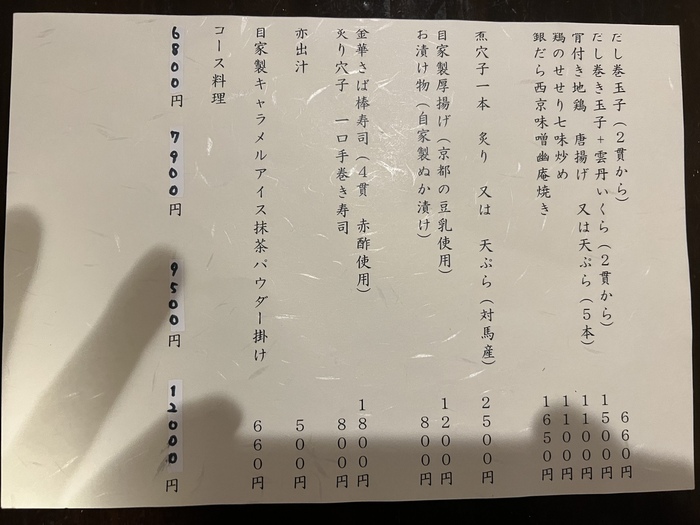 だし巻玉子（２貫から） ６６０円
だし巻き玉子＋雲丹いくら（２貫から） １５００円
骨付き地鶏　唐揚げ　又は天ぷら（５本） １１００円
鶏のせせり七味炒め １１００円
銀だら西京味噌幽庵焼き １６５０円
煮穴子一本　炙り　又は　天ぷら（対馬産） ２５００円
自家製厚揚げ（京都の豆乳使用） １２００円
お漬け物（自家製ぬか漬け） ８００円
金華さば棒寿司（４貫　赤酢使用） １８００円
炙り穴子　一口手巻き寿司 ８００円
赤出汁 ５００円
自家製キャラメルアイス抹茶パウダー掛け ６６０円
コース料理
６８００円　７９００円　９５００円　１２０００円